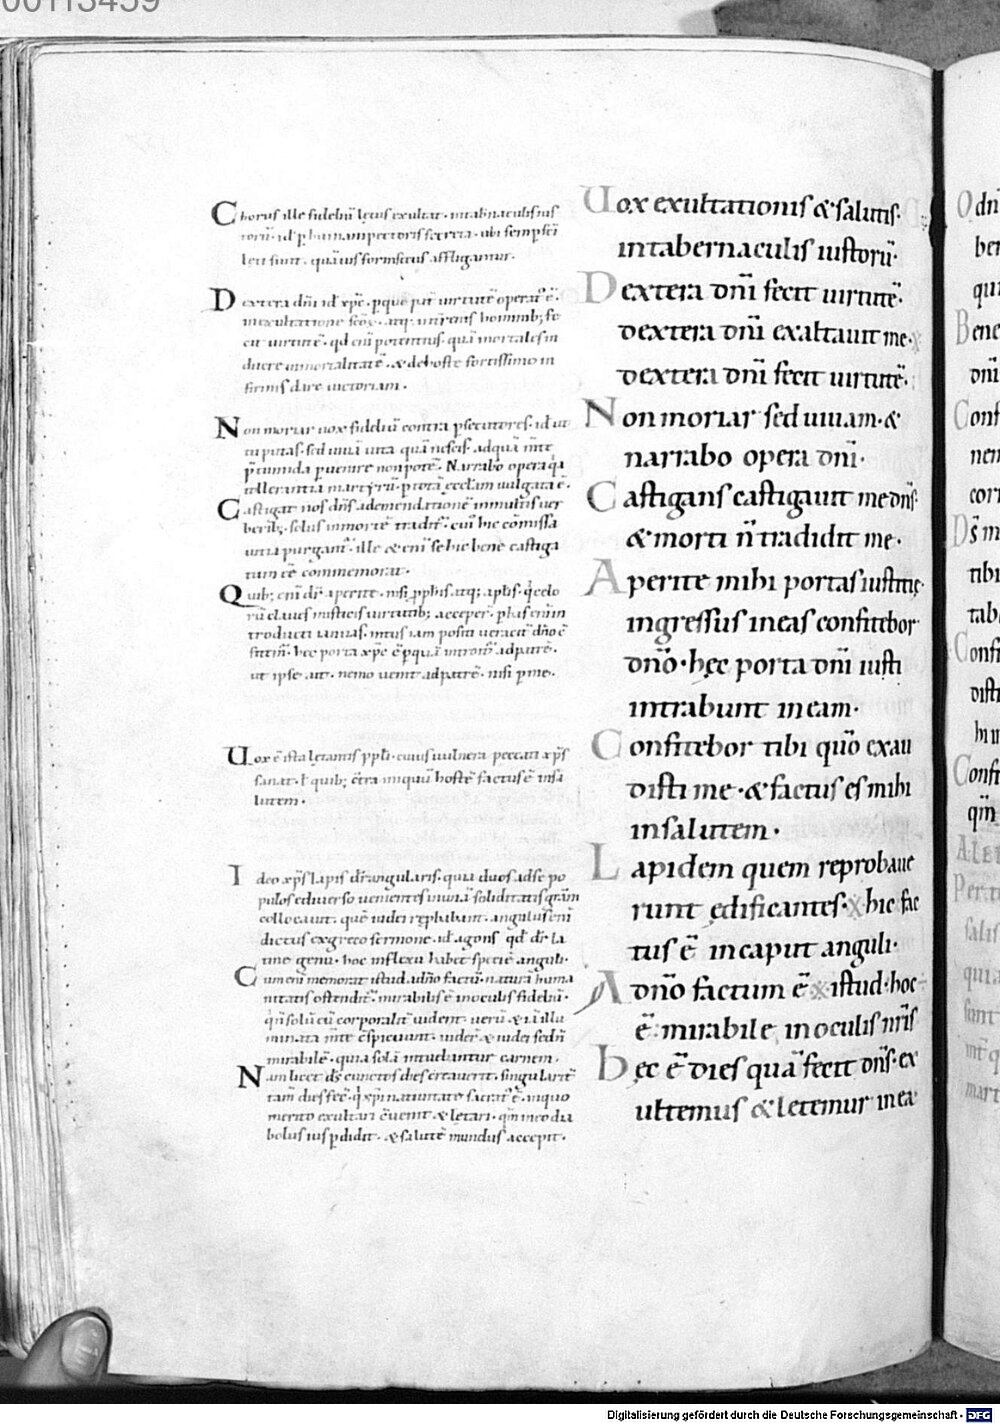 00113459
Chorus ille fideliū letus exultat · intabnaculis ius
leti sunt · quāuis forinsecus affligantur ·
Dextera dn̄i id xp̄c · p quē pat̄ uirtutē operat̄ ē ·
cit uirtutē · qd enī potentius · quā mortales in
ducere inmortalitatē · & de hoste fortissimo in
firmis dare uictoriam ·
Non moriar uox fideliū contra psecutores · id ut
tu putas · sed uiuā uita quā nescis · ad quā m̄te
tellerantia martyrū · p totā eccl̄am uulgata ē ·
Castigat nos dn̄s ad emendationē in multis uer
berib; · solus in mortē tradit̄ · cui hic cōmissa
uitia purgant̄ · ille & enī se hic bene castiga
tum eē commemorat ·
Quib; enī dr̄ aperite · nisi pphis · atq; apl̄is · q̄ celo
rū claues misticis uirtutib; acceper̄ · p has enim
troducti ianuas · intus iam positi ueracit̄ dn̄o c̄
fitent̄ · hec porta xp̄c ē p quā introit̄ ad patrē ·
ut ipse ait · nemo uenit ad patrē · nisi p me ·
Uox ē ista letantis ppl̄i · cuius uulnera peccati xp̄s
sanat · l̄ quib; c̄tra iniquū hostē factus ē insa
lutem ·
Ideo xp̄s lapis dr̄ angularis · quia duos ad se po
pulos e diuerso uenientes in unā soliditatis grām
collocauit · quē iudei repbabant · angulus enī
dictus ex greco sermone · id agons qd dr̄ la
tine genu · hoc inflexu habet speciē anguli ·
Cum enī memorat istud a dn̄o factū · naturā huma
nitatis ostendit̄ · mirabilis ē in oculis fideliū ·
minata m̄te c̄spiciunt · uider̄ & iudei sed n̄
mirabilē · quia solā intuebantur carnem ·
Nam licet ds̄ cunctos dies creauerit · singularit̄
tam̄ dies fec̄ · q̄ xp̄i natiuitate sacrat̄ ē · in quo
merito exultari c̄uenit & letari · qm̄ in eo dia
bolus ius pdidit · & salutē mundus accepit ·
Uox exultationis & salutis ·
intabernaculis iustorū ·
Dextera dn̄i fecit uirtutē ·
dextera dn̄i exaltauit me ·
dextera dn̄i fecit uirtutē ·
Non moriar sed uiuam · &
narrabo opera dn̄i ·
Castigans castigauit me dn̄s ·
& morti n̄ tradidit me ·
Aperite mihi portas iustitię ·
ingressus in eas confitebor
dn̄o · hęc porta dn̄i iusti
intrabunt in eam ·
Confitebor tibi qm̄ exau
disti me · & factus es mihi
in salutem ·
Lapidem quem reprobaue
runt ędificantes · hic fac
tus ē in caput anguli ·
A dn̄o factum ē istud · hoc
ē mirabile in oculis nr̄is
Hec ē dies quā fecit dn̄s · ex
ultemus & letemur in ea
Digitalisierung gefördert durch die Deutsche Forschungsgemeinschaft - DFG